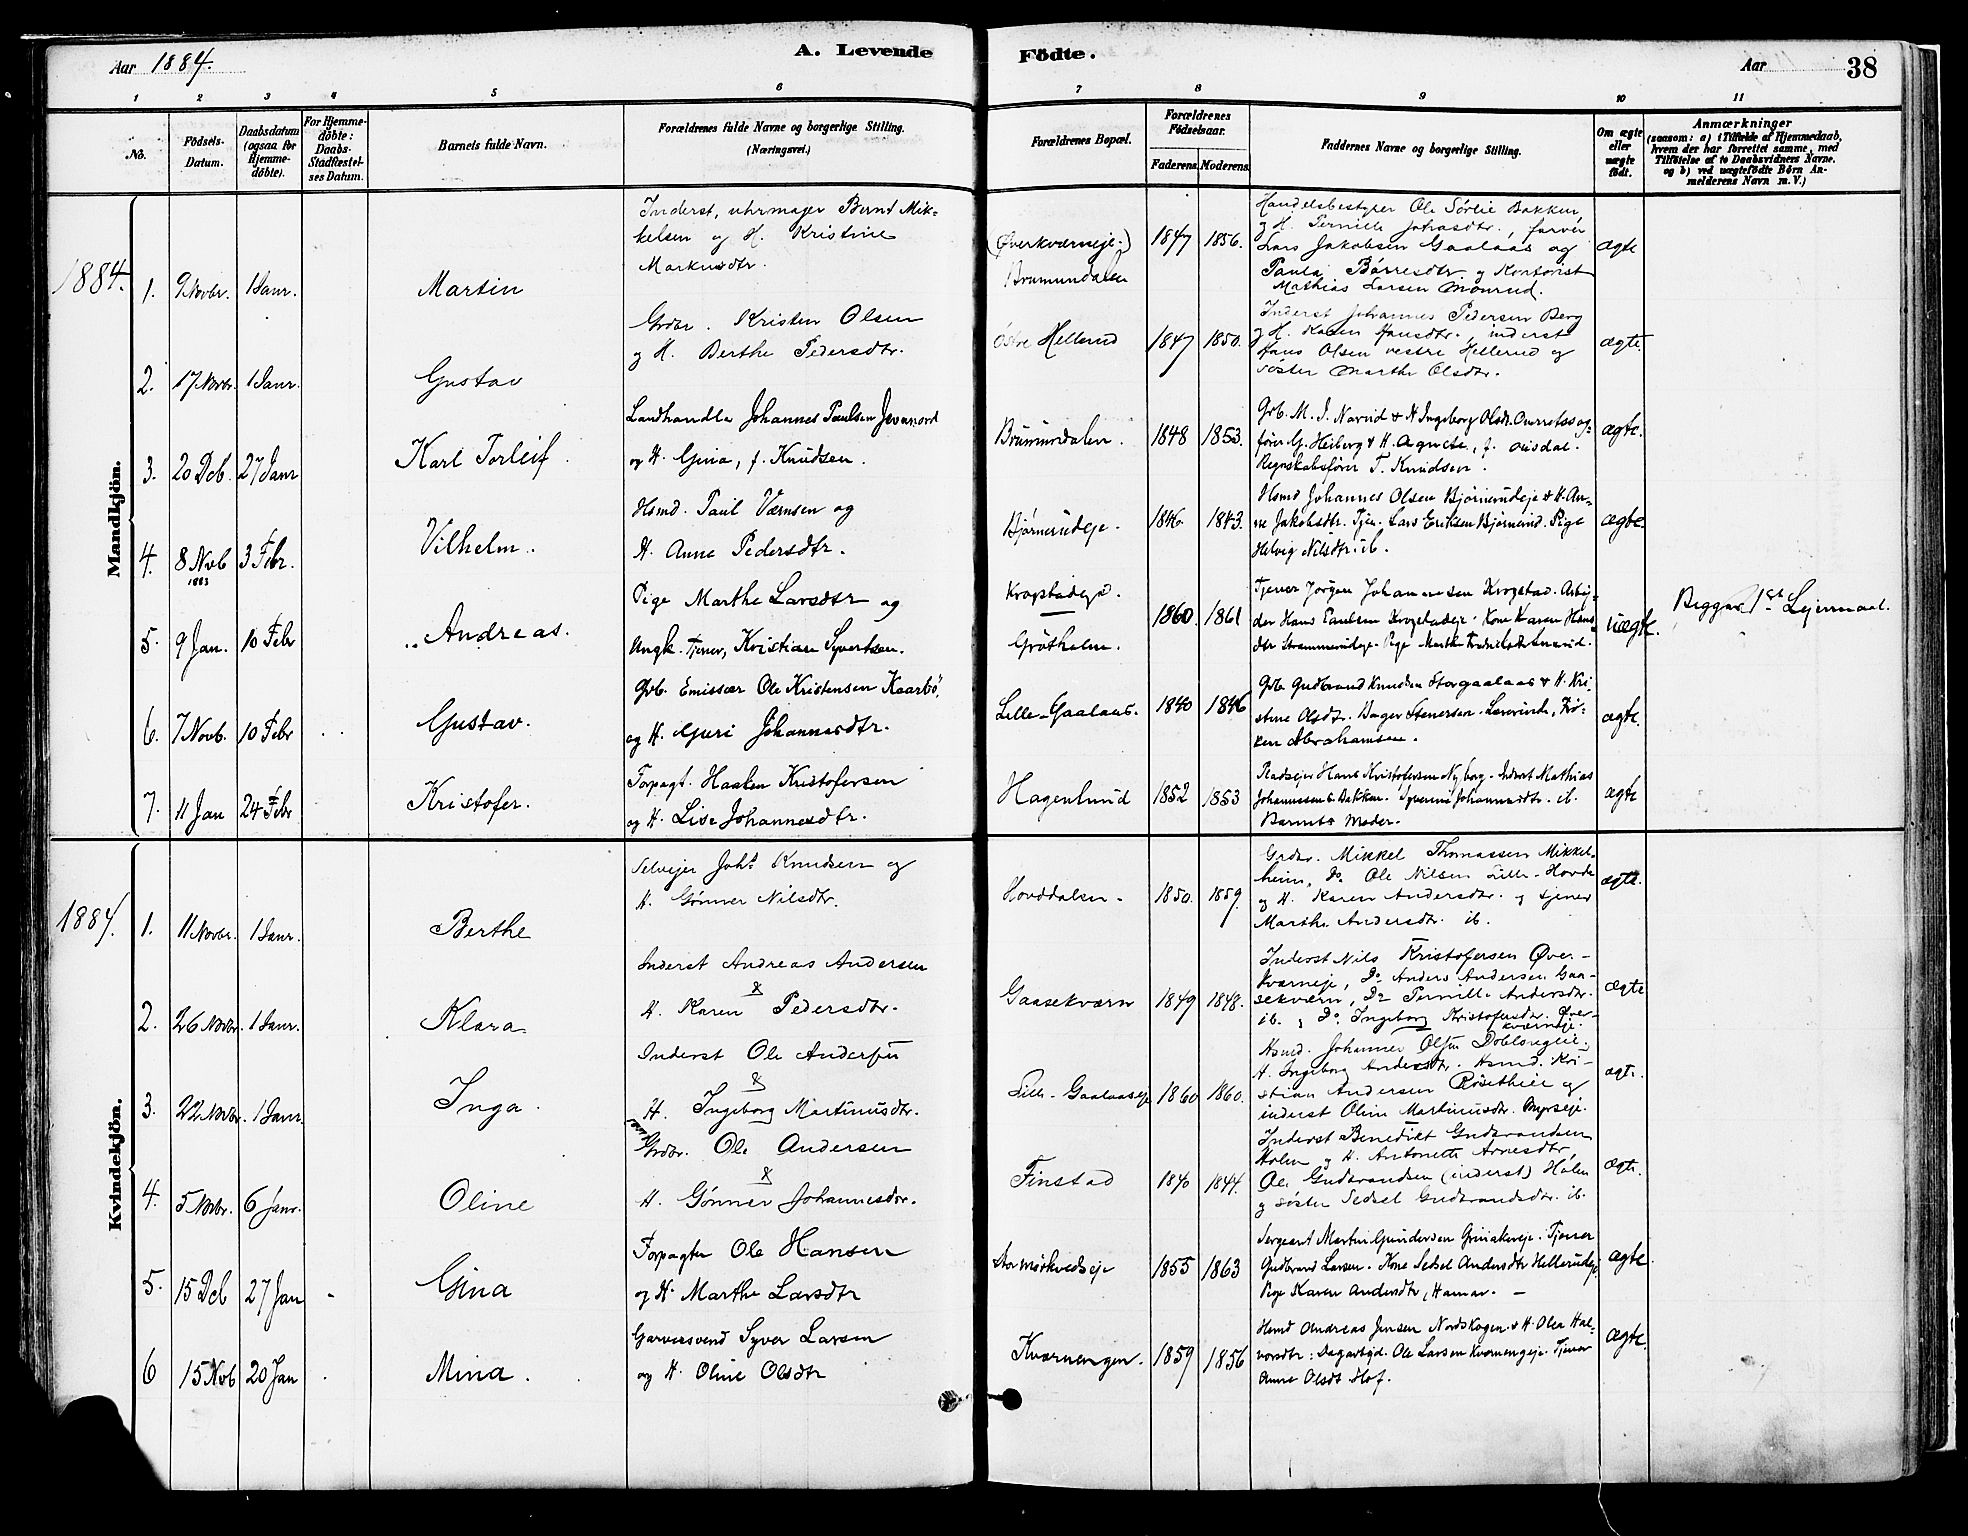 Aar 1884.
A. Levende
Födte.
Aar
38
1 2 3 4 5 6 7 8 9 10 11
No.
Födsels-
Datum.
Daabsdatum
(ogsaa for
Hjemme-
döbte).
For Hjemme-
döbte:
Daabs-
Stadfæstel-
ses Datum.
Barnets fulde Navn.
Forældrenes fulde Navne og borgerlige Stilling.
(Næringsvei.)
Forældrenes Bopæl.
Forældrenes
Födselsaar.
Faderens.
Moderens.
Faddernes Navne og borgerlige Stilling.
Om ægte
eller
uægte
födt.
Anmærkninger
(saasom: a) i Tilfælde af Hjemmedaab,
hvem der har forrettet samme, med
Tilföielse af to Daabsvidners Navne.
og b) ved uægtefödte Börn An-
melderens Navn m. V.)
Mandkjön.
1884.
1. 9 Novbr. 1 Janr. Martin
Inderst, uhrmager Bernt Mik-
kelsen og H. Kristine
Markusdtr.
(Øverkværneje.)
Brumundalen
1847 1856.
Handelsbestyrer Ole Sørlie Bakken,
og H. Pernille Johasdtr., farver
Lars Jakobsen Gaalaas og
Paula Børresdtr. og Kontorist
Mathias Larsen Monrud.
ægte
2. 17 Novbr. 1 Janr. Gustav
Grdbr. Kristen Olsen
og H. Berthe Pedersdtr.
Østre Hellerud
1847 1850.
Inderst Johannes Pedersen Berg
og H. Karen Hansdtr., inderst
Hans Olsen vestre Hellerud og
søster Marthe Olsdtr.
ægte.
3. 20 Dcb. 27 Janr Karl Torleif.
Landhandler Johannes Paulsen
og H. Gina, f. Knudsen.
Brumundalen.
1848 1853.
Grb. M. J. Narud & H Ingeborg Olsdtr.
fører G. Heiberg & H. Agnete, f.
Regnskabsfører T. Knudsen.
ægte.
4. 8 Novb 1883 3 Febr. Vilhelm.
Hsmd. Paul Værnsen og
H. Anne Pedersdtr.
Bjørnerudeje.
1846. 1843.
Hsmd Johannes Olsen Bjørnerudeje & H. An-
ne Jakobsdtr. Tjen. Lars Eriksen Bjørnerud. Pige
Helvig Nilsdtr. ib.
ægte.
5. 9 Jan. 10 Febr Andreas.
Pige Marthe Larsdtr og
Ungk. Tjener, Kristian Syvertsen.
Krogstadeje.
Grøtholm.
1860. 1861
Tjener Jørgen Johannesen Krogstad. Arbej-
der Hans Paulsen Krogstadeje. Kone Karen Hans-
dtr Strømmerudeje. Pige Marthe
uægte.
Begges 1ste Lejermaal.
6. 7 Novb. 10 Febr Gustav.
Grb. Emissær Ole Kristensen Kaarbö,
og H. Guri Johannesdtr.
Lille-Gaalaas.
1840 1846
Grb Gudbrand Knudsen Storgaalaas & H. Kri-
stine Olsdtr. Bager Stenersen. Lærerinde,
Abrahamsen.
ægte.
7. 11 Jan 24 Febr Kristofer.
Forpagt. Haaken Kristofersen
og H. Lise Johannesdtr.
Hagenlund
1852 1853
Pladsejer Hans Kristofersen Nyborg. Inderst Mathias
Johannessen Bakken. Syverine Johannesdtr. ib.
Barnets Moder.
ægte
Kvindekjön.
1884.
1. 11 Novbr. 1 Janr. Berthe
Selvejer Johs. Knudsen og
H. Gønner Nilsdtr.
Hovdalen.
1850. 1859.
Grdbr. Mikkel Thomassen Mikkel-
heim, Do Ole Nilsen Lille-Hovde
og H. Karen Andersdtr. og tjener
Marthe Andersdtr. ib.
ægte.
2. 26 Novbr. 1 Janr. Klara.
Inderst Andreas Andersen
&
H. Karen Pedersdtr.
Gaasekværn
1849 1848.
Inderst Nils Kristofersen Øver-
kværneje, Do Anders Andersen Gaa-
sekværn, Do Pernille Andersdtr.
ib., Do. Ingeborg Kristofersdtr. Øver-
kværneje.
ægte
3. 22 Novbr. 1 Janr. Inga.
Inderst Ole Andersen
&
H. Ingeborg Martinusdtr.
Lille-Gaalaaseje
1860 1860.
Hsmd. Johannes Olsen
H. Ingeborg Andersdtr. Hsmd. Kri-
stian Andersen Røsetheie og
inderst Oline Martinusdtr. Myrseje.
ægte.
4. 5 Novbr. 6 Janr. Oline
Grdbr. Ole Andersen
&
H. Gønner Johannesdtr.
Finstad
1840 1844.
Inderst Benedikt Gudbrandsen
Holen og H. Antonette Arnesdtr,
Ole Gudbrandsen (inderst) Holen
og søster Sedsel Gudbrandsdtr. ib.
ægte.
5. 15 Dcb 27 Jan Gina
Forpagter Ole Hansen
og H. Marthe Larsdtr
Stormørkvedseje
1855 1863
Sergeant Martin Gundersen Grinakereje. Tjener
Gudbrand Larsen. Kone Sedsel Andersdtr Hellerudeje.
Pige Karen Andersdtr, Hamar.
ægte.
6 15 Novb 20 Jan Mina.
Garversvend Syver Larsen
og H. Oline Olsdtr
Kværnengen.
1859 1856
Hsmd Andreas Jensen Nordskogen & H. Olea Hal-
vorsdtr: Dagarbejd. Ole Larsen Kværnengeje. Tjener
Anne Olsdt Hof.
ægte.